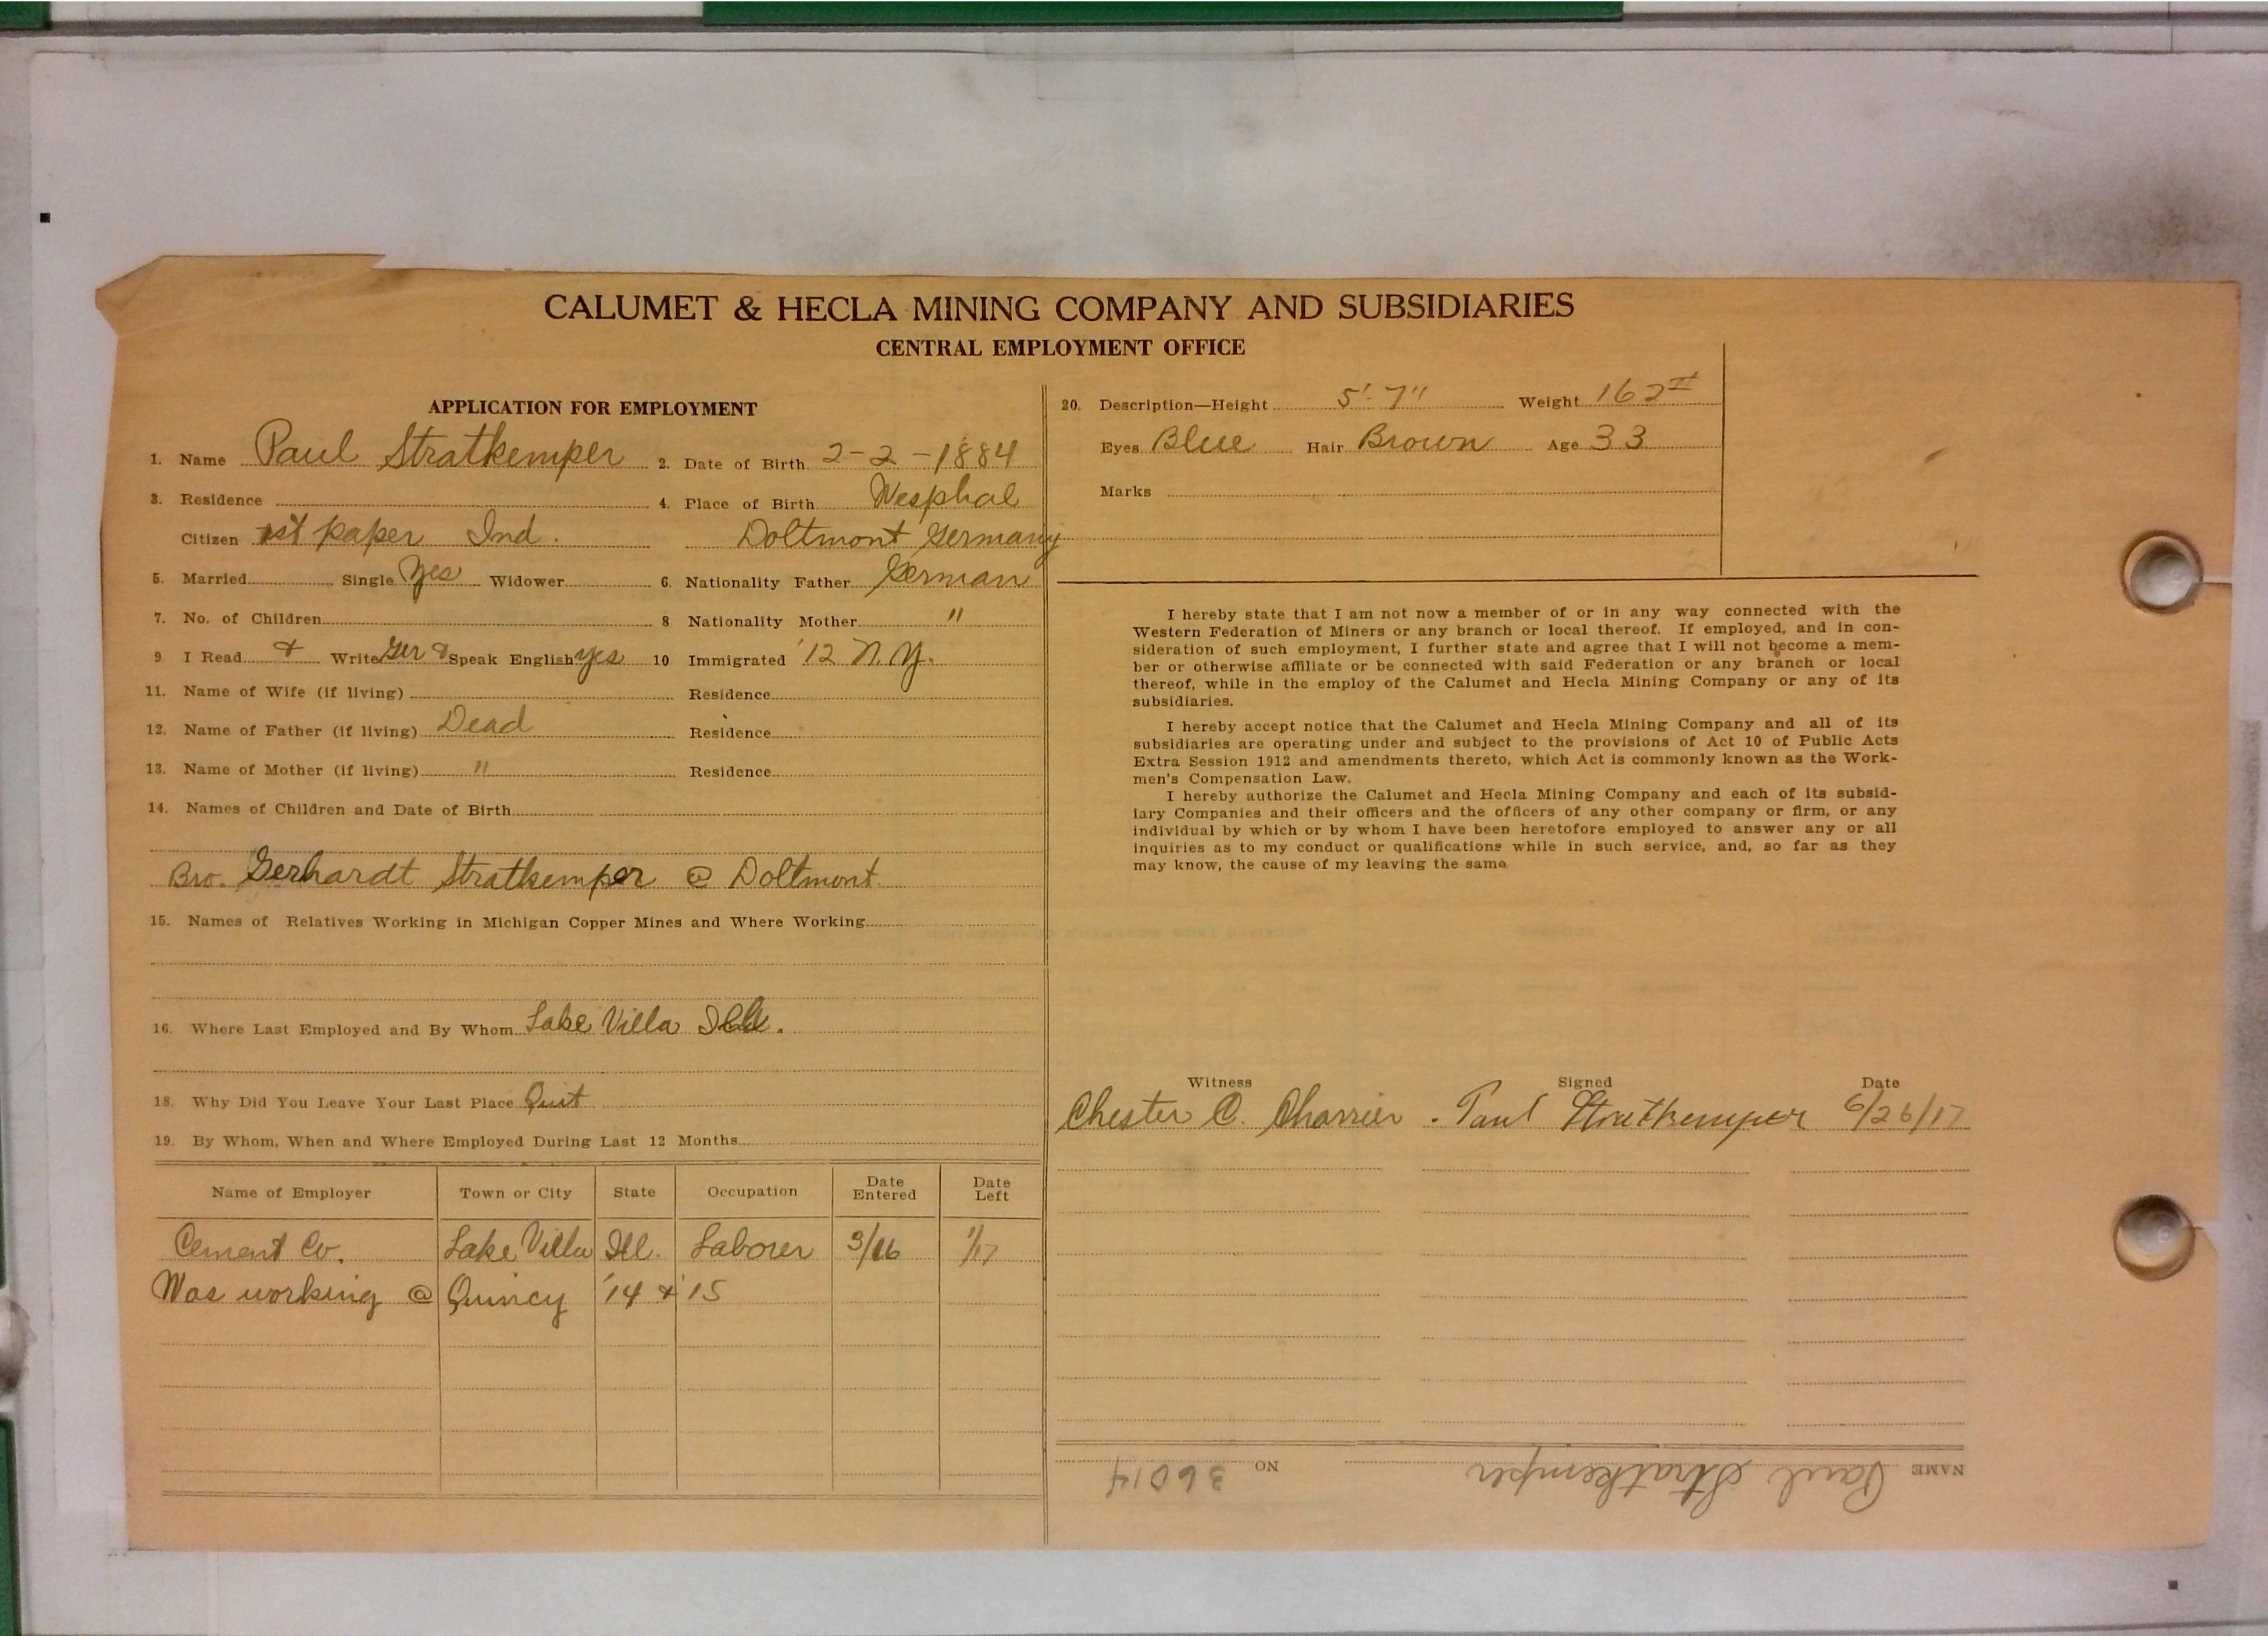 CALUMET & HECLA MINING COMPANY AND SUBSIDIARIES
CENTRAL EMPLOYMENT OFFICE
APPLICATION FOR EMPLOYMENT
1. Name Paul Stratkemper 2. Date of Birth 2-2-1884
3. Residence 4. Place of Birth Wesphal
Citizen 1st paper Ind. Doltmont Germany
5. Married Single Yes Widower 6. Nationality Father German
7. No. of Children 8 Nationality Mother "
9 I Read & Write Ger & Speak English yes 10 Immigrated '12 N.Y.
11. Name of Wife (if living) Residence
12. Name of Father (if living) Dead Residence
13. Name of Mother (if living) " Residence
14. Names of Children and Date of Birth
Bro. Gerhardt Stratkemper @ Doltmont
15. Names of Relatives Working in Michigan Copper Mines and Where Working
16. Where Last Employed and By Whom Lake Villa Ill.
18. Why Did You Leave Your Last Place Quit
19. By Whom, When and Where Employed During Last 12 Months
Name of Employer Town or City State Occupation Date Entered Date Left
Cement Co. Lake Villa Ill. Laborer 3/16 1/17
Was working @ Quincy '14 & '15
20. Description—Height 5' 7" Weight 162#
Eyes Blue Hair Brown Age 33
Marks
I hereby state that I am not now a member of or in any way connected with the
Western Federation of Miners or any branch or local thereof. If employed, and in con-
sideration of such employment, I further state and agree that I will not become a mem-
ber or otherwise affiliate or be connected with said Federation or any branch or local
thereof, while in the employ of the Calumet and Hecla Mining Company or any of its
subsidiaries.
I hereby accept notice that the Calumet and Hecla Mining Company and all of its
subsidiaries are operating under and subject to the provisions of Act 10 of Public Acts
Extra Session 1912 and amendments thereto, which Act is commonly known as the Work-
men's Compensation Law.
I hereby authorize the Calumet and Hecla Mining Company and each of its subsid-
iary Companies and their officers and the officers of any other company or firm, or any
individual by which or by whom I have been heretofore employed to answer any or all
inquiries as to my conduct or qualifications while in such service, and, so far as they
may know, the cause of my leaving the same
Witness Signed Date
Chester C. Charrier Paul Stratkemper 6/26/17
NAME Paul Stratkemper NO 36014